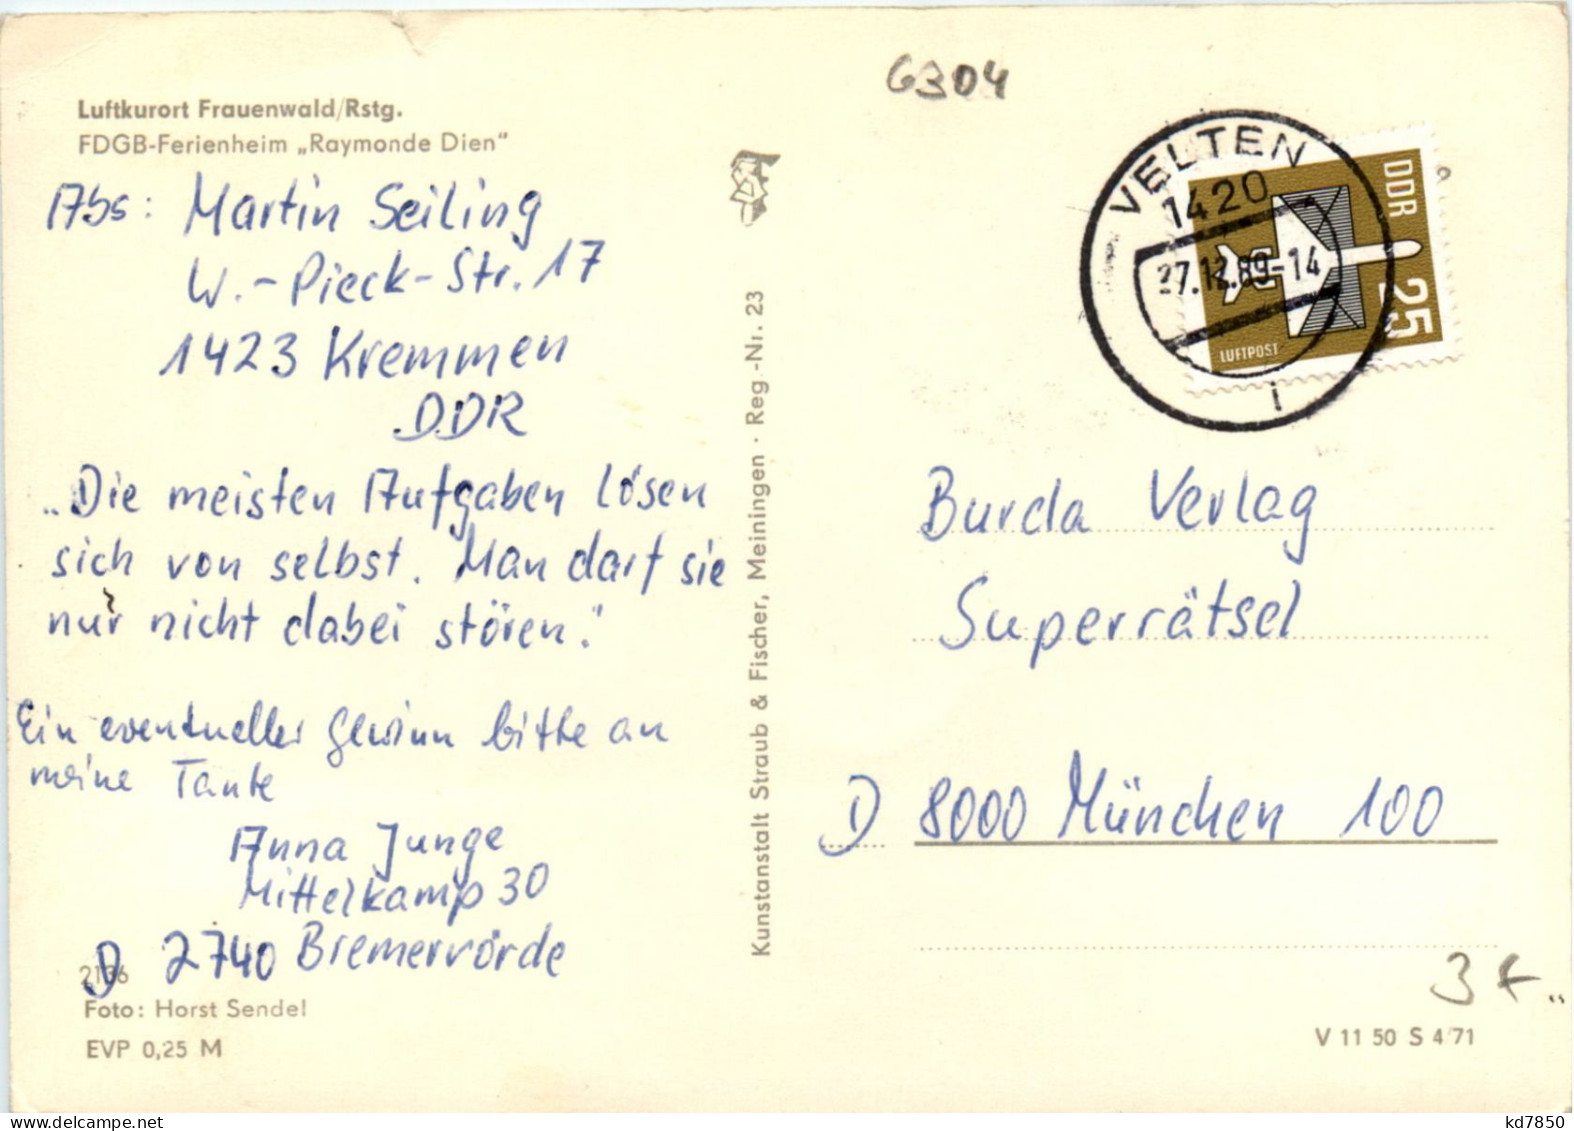 Luftkurort Frauenwald/Rstg.
FDGB-Ferienheim „Raymonde Dien“
Abs: Martin Seiling
W.-Pieck-Str. 17
1423 Kremmen
DDR
„Die meisten Aufgaben lösen
sich von selbst. Man darf sie
nur nicht dabei stören."
Ein eventueller Gewinn bitte an
meine Tante
Anna Junge
Mittelkamp 30
D 2740 Bremervörde
2136
Foto: Horst Sendel
EVP 0,25 M
Kunstanstalt Straub & Fischer, Meiningen · Reg.-Nr. 23
6304
VELTEN
1420
27.12.89-14
i
DDR
25
LUFTPOST
Burda Verlag
Superrätsel
D 8000 München 100
V 11 50 S 4/71
delcampe.net
kd7850